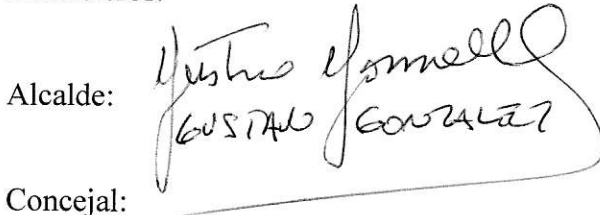 Alcalde:
GUSTAVO GONZALEZ
Concejal: